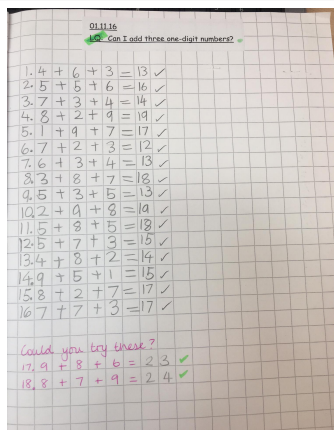 01.11.16
LO: Can I add three one-digit numbers?
1. 4 + 6 + 3 = 13 ✓
2. 5 + 5 + 6 = 16 ✓
3. 7 + 3 + 4 = 14 ✓
4. 8 + 2 + 9 = 19 ✓
5. 1 + 9 + 7 = 17 ✓
6. 7 + 2 + 3 = 12 ✓
7. 6 + 3 + 4 = 13 ✓
8. 3 + 8 + 7 = 18 ✓
9. 5 + 3 + 5 = 13 ✓
10. 2 + 9 + 8 = 19 ✓
11. 5 + 8 + 5 = 18 ✓
12. 5 + 7 + 3 = 15 ✓
13. 4 + 8 + 2 = 14 ✓
14. 9 + 5 + 1 = 15 ✓
15. 8 + 2 + 7 = 17 ✓
16 7 + 7 + 3 = 17 ✓
Could you try these?
17. 9 + 8 + 6 = 23 ✓
18. 8 + 7 + 9 = 24 ✓